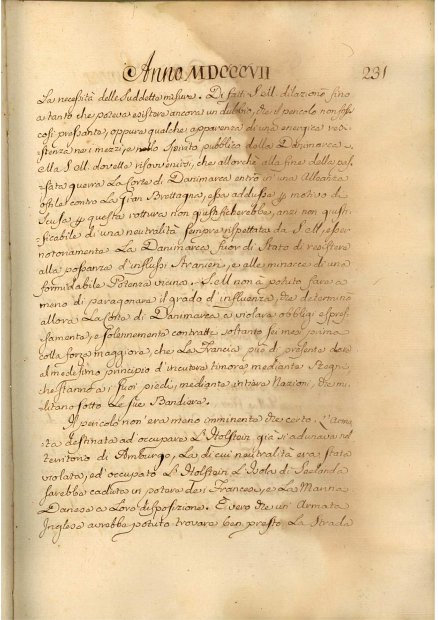 Anno MDCCCVII 231
La necessità delle Suddette misure. Di fatti S. M. dilazionò fino
a tanto che poteva esistere ancora un dubbio, che il pericolo non fosse
così pressante, oppure qualche apparenza di una energica re=
=sistenza nei mezzi, e nello Spirito pubblico della Danimarca.
ella S. M. dovette risovvenirsi, che allorchè alla fine della pas=
=sata guerra La Corte di Danimarca entrò in una Alleanza
ostile contro La Gran Brettagna, essa addusse motivo di
Scusa questa rottura non giustificherebbe, anzi non giusti=
=ficabile di una neutralità sempre rispettata da S. M., esser
notoriamente La Danimarca fuor di Stato di resistere
alla possanza d'influssi Stranieri, e alle minacce di una
formidabile Potenza vicina. S. M. non à potuto fare a
meno di paragonare il grado d'influenza, che determinò
allora La Corte di Danimarca a violare obblighi espres=
samente, e solennemente contratti soltanto sei mesi prima
colla forza maggiore, che La Francia presente dava
al medesimo principio d'incutere timore mediante Regni,
che stanno a i suoi piedi, mediante intiere Nazioni, che mi=
litano sotto Le sue Bandiere.
Il pericolo non era meno imminente che certo. L'Arma=
ta destinata ad occupare L'Holstein, già si adunava nel
territorio di Amburgo, La di cui neutralità era stata
violata, ed occupato L'Holstein L'Isola di Seelanda
sarebbe caduta in potere dei Francesi, e La Marina
Danese a Loro disposizione. È vero che un'Armata
Inglese avrebbe potuto trovare ben presto La Strada